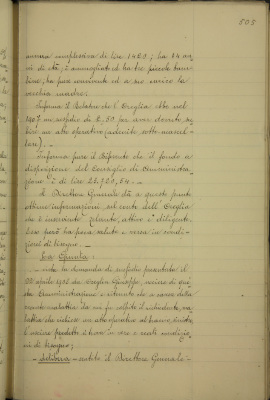 505
somma complessiva di lire 1420; ha 34 an-
ni di età, è ammogliato ed ha tre piccoli bam-
bini; ha pure convivente ed a suo carico la
vecchia madre.
Informa il Relatore che l'Oreglia ebbe nel
1907 un sussidio di £. 50 per aver dovuto su-
bire un atto operativo
Informa pure il Riferente che il fondo a
disposizione del Consiglio di Amministra-
zione è di lire 22.720,54. -
Il Direttore Generale dà a questo punto
ottime informazioni sul conto dell'Oreglia
che è inserviente zelante, attivo e diligente.
Esso però ha poca salute e versa in condi-
zioni di bisogno. -
Il Consiglio:
- vista la domanda di sussidio presentata il
20 aprile 1915 da Oreglia Giuseppe, usciere di que-
sta Amministrazione, e ritenuto che a causa della
grave malattia da cui fu colpito il richiedente, ma-
lattia che richiese un atto operativo al braccio sinistro,
l'usciere predetto si trova in vere e reali condizio-
ni di bisogno;
- delibera, - sentito il Direttore Generale -